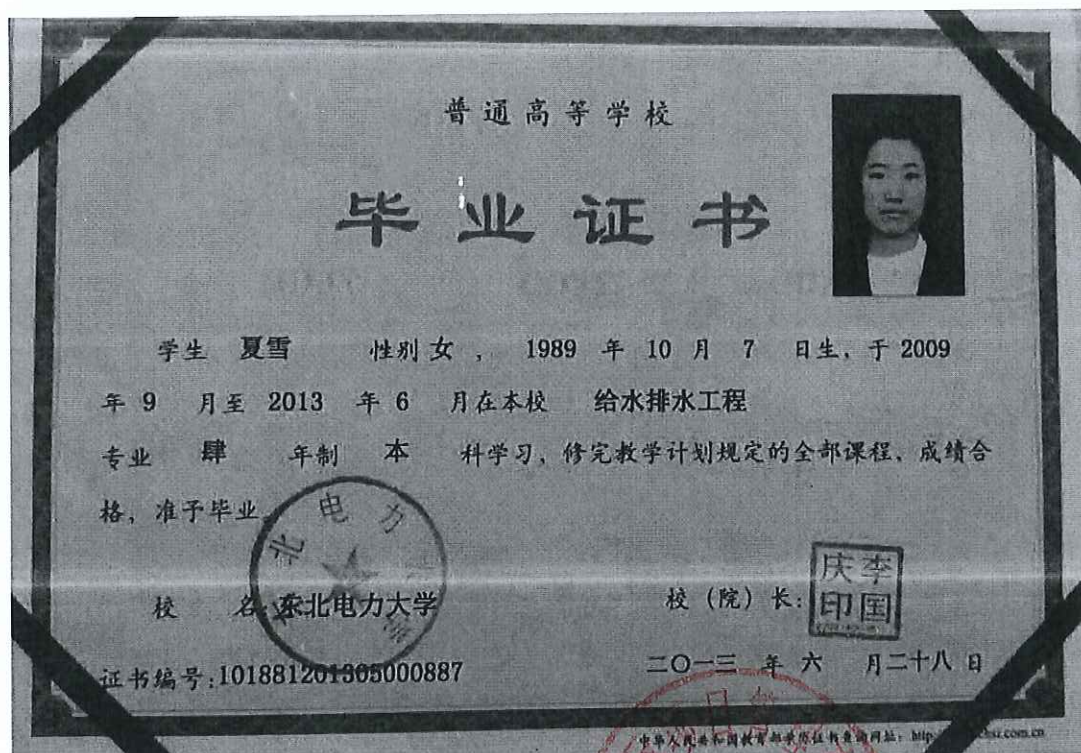 普通高等学校
毕业证书
学生 夏雪 性别 女 ， 1989 年 10 月 7 日生，于 2009
年 9 月至 2013 年 6 月在本校 给水排水工程
专业 肆 年制 本 科学习，修完教学计划规定的全部课程，成绩合
格，准予毕业。
北 电 力
校 名：东北电力大学
校（院）长：
李国庆印
证书编号：101881201305000887
二〇一三 年 六 月二十八 日
中华人民共和国教育部学历证书查询网址：http
.com.cn